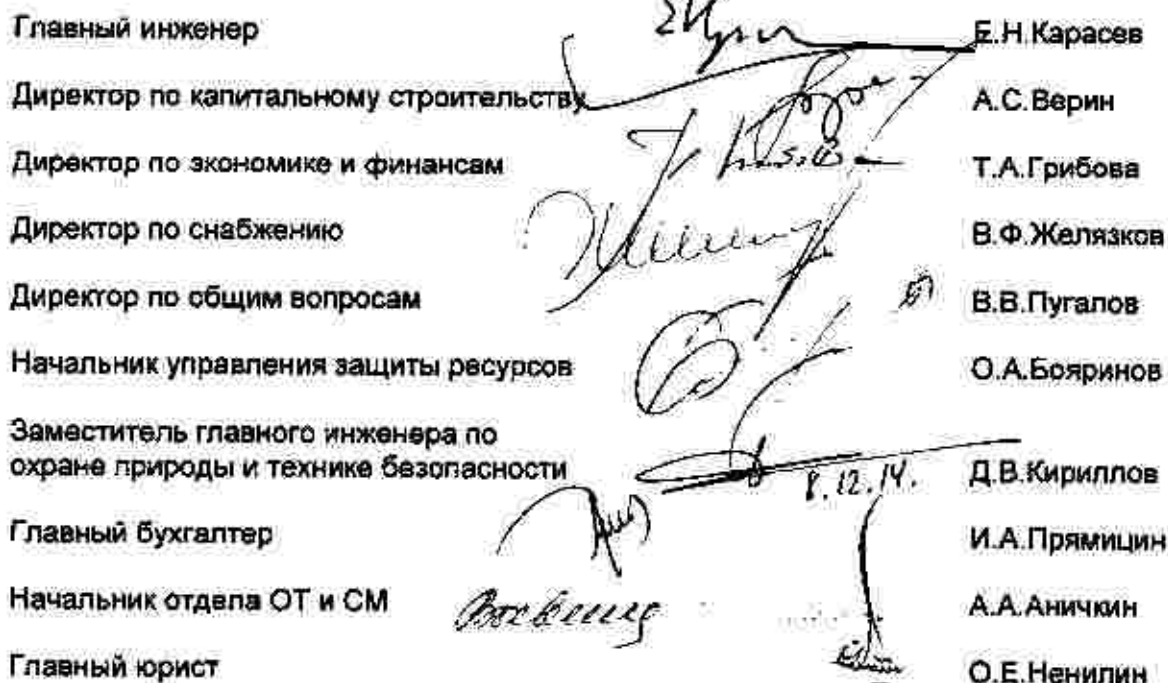 Главный инженер Е.Н.Карасев
Директор по капитальному строительству А.С.Верин
Директор по экономике и финансам Т.А.Грибова
Директор по снабжению В.Ф.Желязков
Директор по общим вопросам В.В.Пугалов
Начальник управления защиты ресурсов О.А.Бояринов
Заместитель главного инженера по
охране природы и технике безопасности 8.12.14. Д.В.Кириллов
Главный бухгалтер И.А.Прямицин
Начальник отдела ОТ и СМ А.А.Аничкин
Главный юрист О.Е.Ненилин